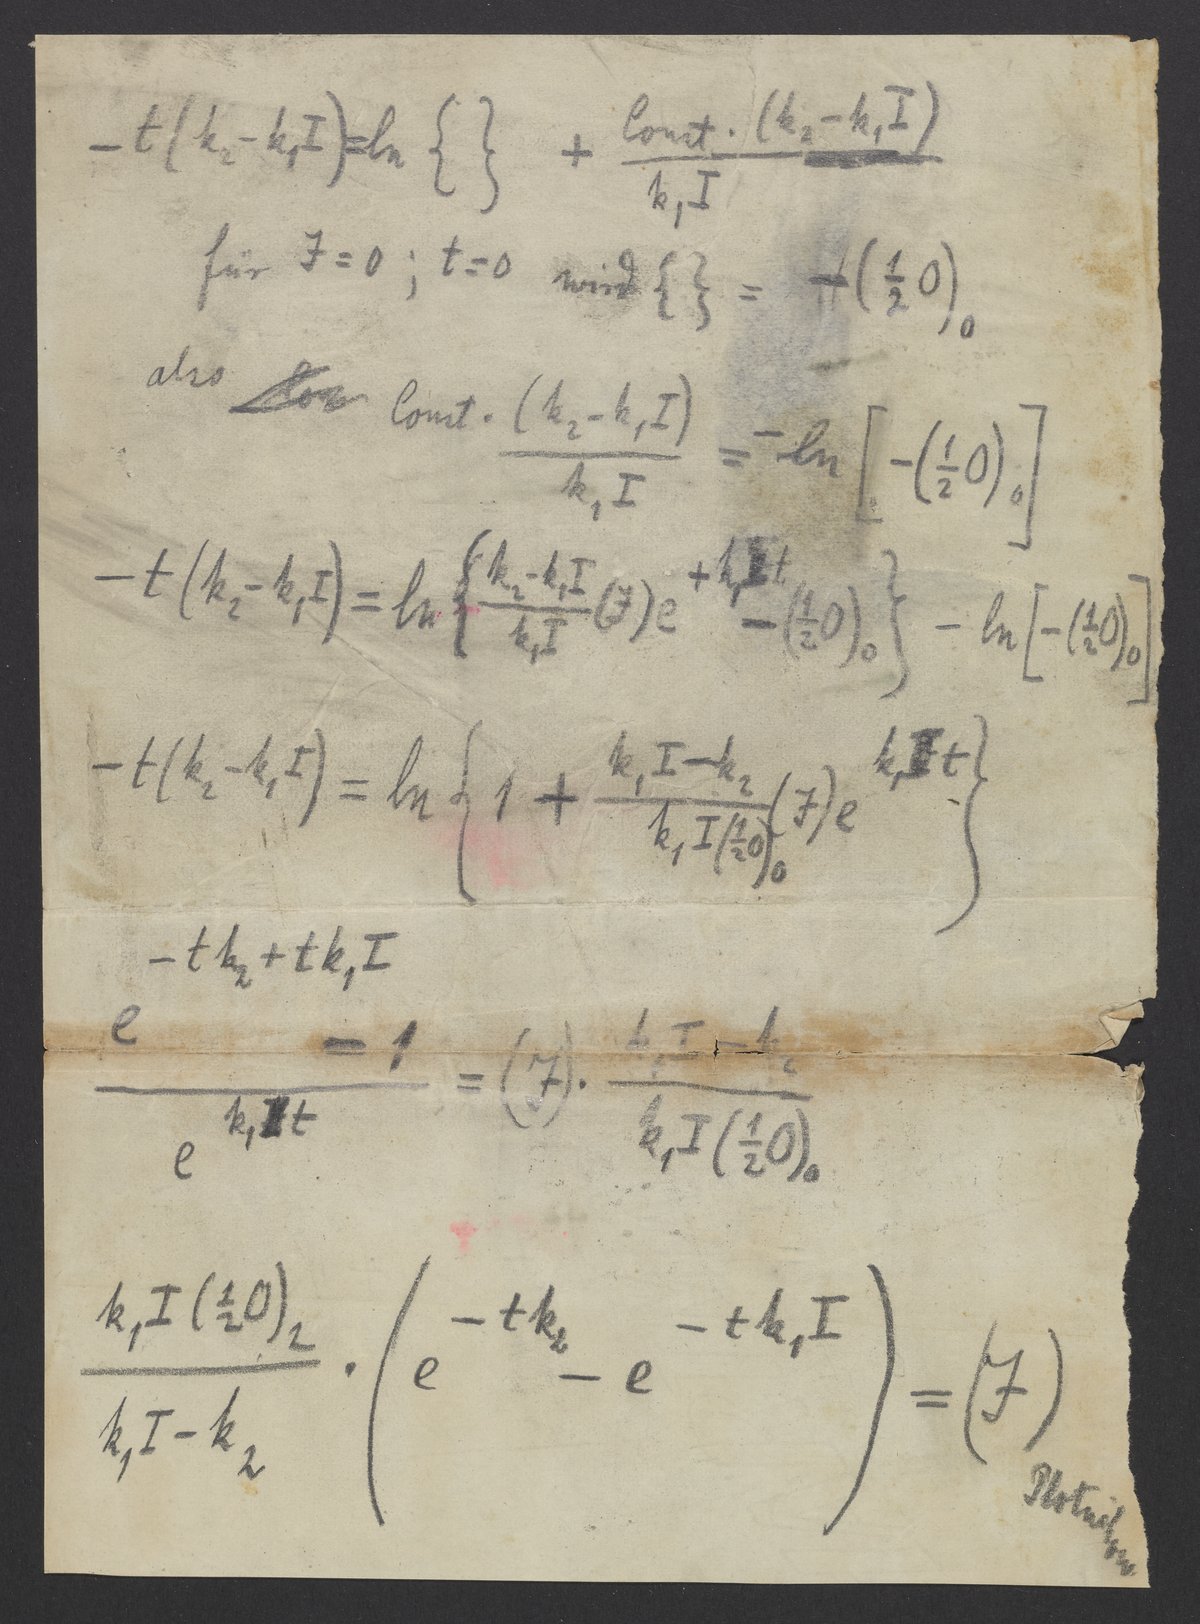 − t (k₂ − k₁I) = ln { } + Const. (k₂ − k₁I) / k₁I
für J = 0 ; t = 0 wird { } = − (½ O)₀
also Const. (k₂ − k₁I) / k₁I = − ln [ − (½ O)₀ ]
− t (k₂ − k₁I) = ln { (k₂ − k₁I) / k₁I (J) e^{+ k₁I t} − (½ O)₀ } − ln [ − (½ O)₀ ]
− t (k₂ − k₁I) = ln { 1 + (k₁I − k₂) / k₁I (½ O)₀ (J) e^{k₁I t} }
(e^{− t k₂ + t k₁I} − 1) / e^{k₁I t} = (J) · (k₁I − k₂) / k₁I (½ O)₀
k₁I (½ O)₂ / (k₁I − k₂) · ( e^{− t k₂} − e^{− t k₁I} ) = (J)